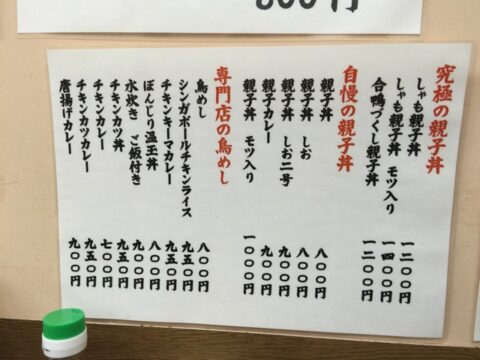 究極の親子丼
しゃも親子丼 一二〇〇円
しゃも親子丼 モツ入り 一四〇〇円
合鴨づくし親子丼 一二〇〇円
自慢の親子丼
親子丼 八〇〇円
親子丼 しお 八〇〇円
親子丼 しお二号 九〇〇円
親子カレー 九〇〇円
親子丼 モツ入り 一〇〇〇円
専門店の鳥めし
鳥めし 八〇〇円
シンガポールチキンライス 九五〇円
チキンキーマカレー 九五〇円
ぼんじり温玉丼 八〇〇円
水炊き ご飯付き 九五〇円
チキンカツ丼 九五〇円
チキンカレー 七〇〇円
チキンカツカレー 九五〇円
唐揚げカレー 九〇〇円